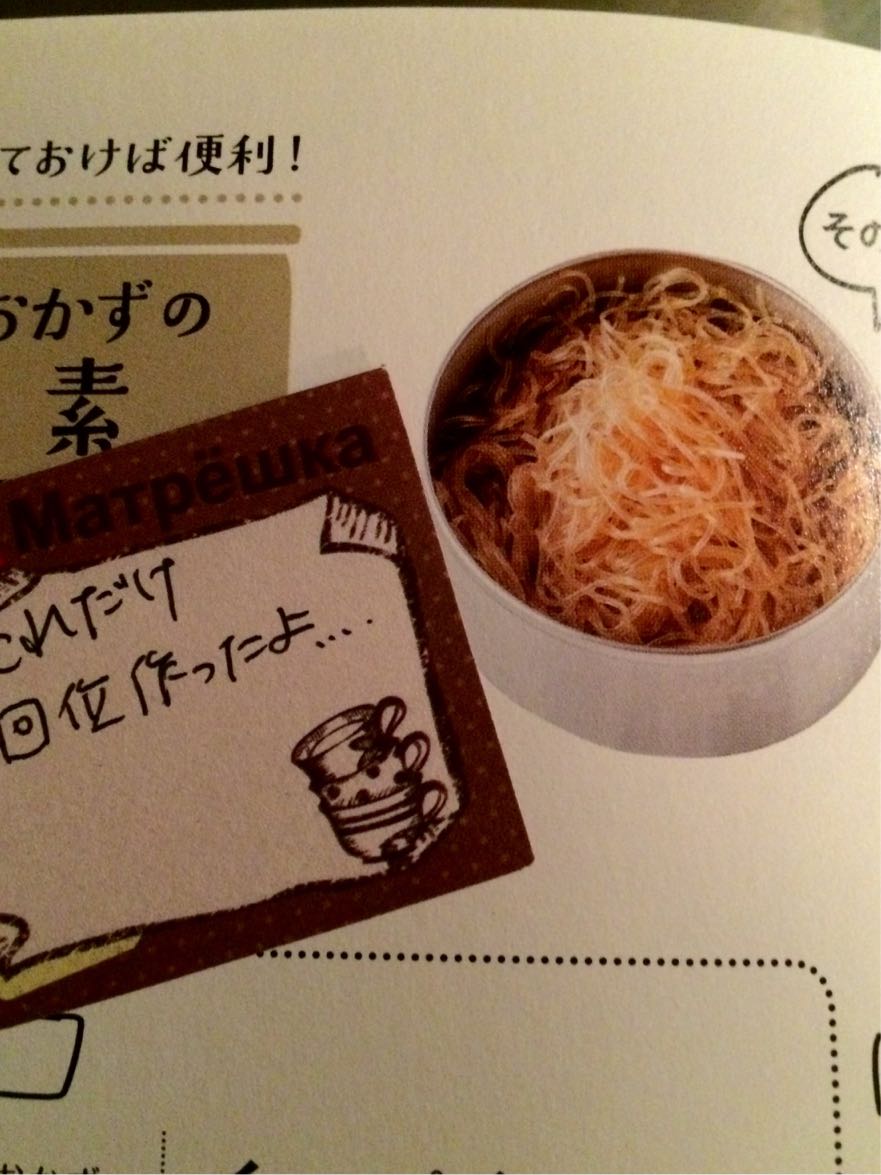 ておけば便利!
おかずの
素
その
Матрёшка
これだけ
回位作ったよ....
おかず